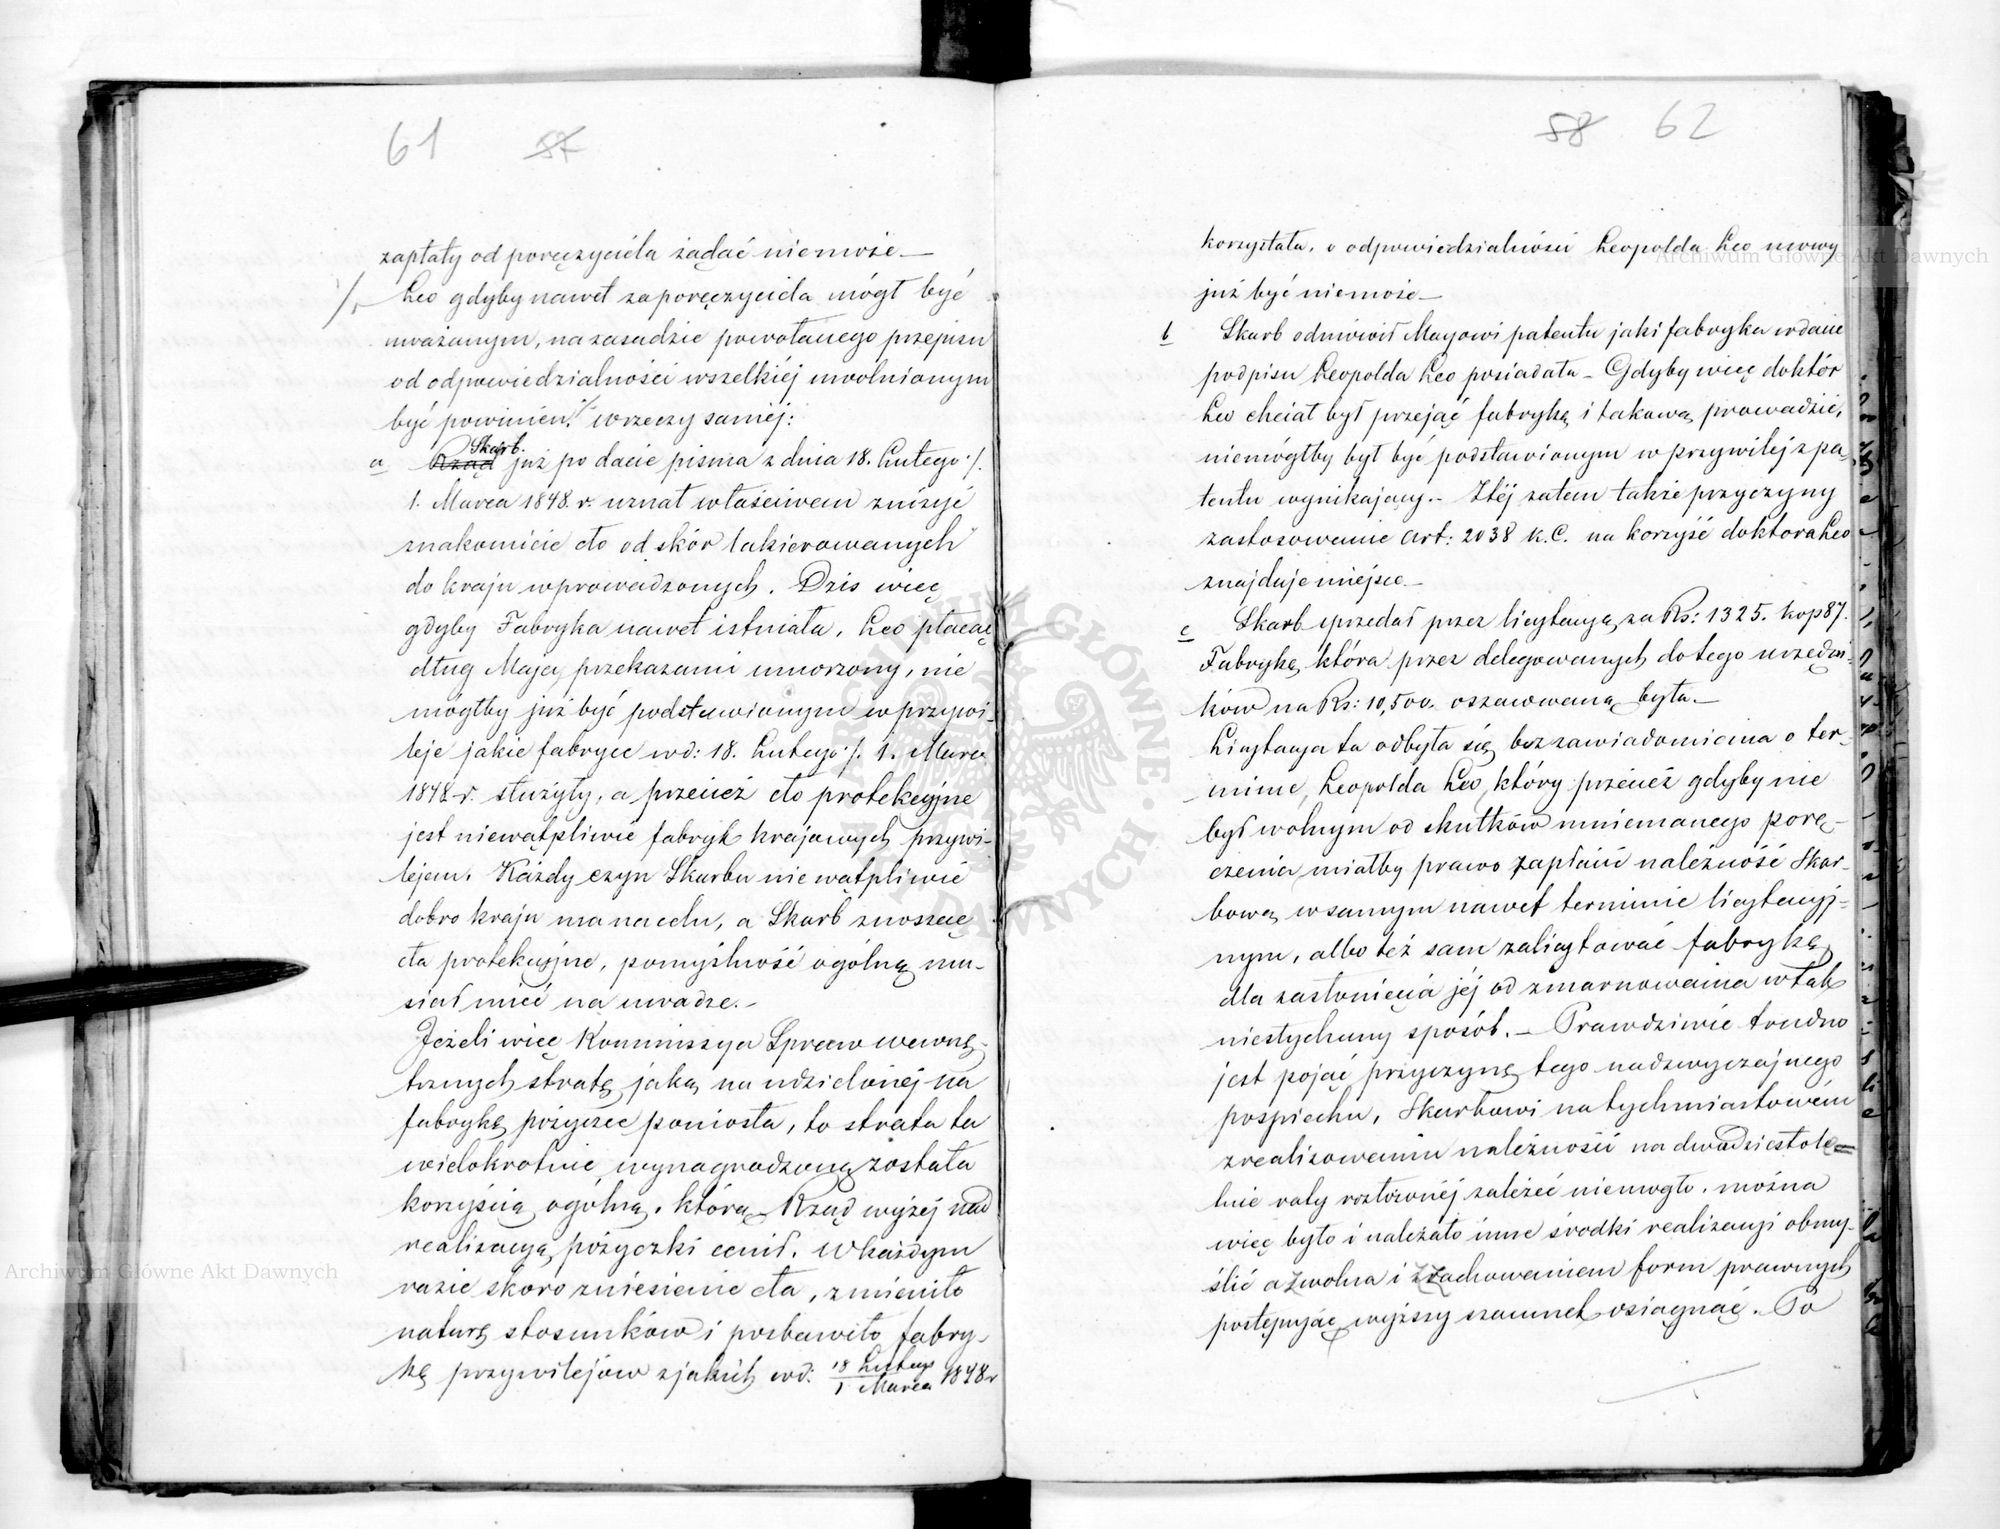 61 57
zapłaty od poręczyciela żądać niemoże —
/. Leo gdyby nawet za poręczyciela mógł być
uważanym, na zasadzie powołanego przepisu
od odpowiedzialności wszelkiéj uwolnionym
być powinien. w rzeczy saméj:
Skarb.
a Rząd już po dacie pisma z dnia 18. Lutego /.
1. Marca 1848. r. uznał właściwem zniżyć
znakomicie cło od skór lakierowanych
do kraju wprowadzonych. Dziś więc
gdyby Fabryka nawet istniała, Leo płacąc
dług Maja, przekazami umorzony, nie
mógłby już być podstawionym w przywi-
leje jakie fabryce w d: 18. Lutego /. 1. Marca
1848 r. służyły, a przecież cło protekcyjne
jest niewątpliwie fabryk krajowych przywi-
lejem. Każdy czyn Skarbu niewątpliwie
dobro kraju ma na celu, a Skarb znosząc
cła protekcyjne, pomyślność ogólną mu-
siał mieć na uwadze. -
Jeżeli więc Kommissya Spraw wewnę-
trznych stratę jaką na udzielonéj na
fabrykę pożyczce poniosła, to strata ta
wielokrotnie wynagrodzoną została
korzyścią ogólną, którą Rząd wyżej nad
realizacyą pożyczki cenił. W każdym
razie skoro zniesienie cła, zmieniło
naturę stosunków i pozbawiło fabry-
kę przywilejów z jakich w d: 18 Lutego / 1 Marca 1848 r
58 62
korzystała, o odpowiedzialności Leopolda Leo mowy
już być niemoże —
b Skarb odmówił Mayowi patentu jaki fabryka w dacie
podpisu Leopolda Leo posiadała - Gdyby więc doktór
Leo chciał był przejąć fabrykę i takową prowadzić,
niemógłby był być podstawionym w przywilej z pa-
tentu wynikający. - Z téj zatem także przyczyny
zastosowanie art: 2038 K.C. na korzyść doktora Leo
znajduje miejsce. -
c Skarb sprzedał przez licytacyą za Rs: 1325. kop 87.
Fabrykę, która przez delegowanych do tego urzędni-
ków na Rs: 10,500. oszacowaną była. -
Licytacya ta odbyła się bez zawiadomienia o ter-
minie, Leopolda Leo, który przecież gdyby nie
był wolnym od skutków mniemanego porę-
czenia, miałby prawo zapłacić należność Skar-
bową, w samym nawet terminie licytacyj-
nym, albo téż sam zalicytować fabrykę
dla zasłonięcia jéj od zmarnowania w tak
niesłychany sposób. - Prawdziwie trudno
jest pojąć przyczynę tego nadzwyczajnego
pospiechu, Skarbowi na tychmiastowém
zrealizowaniu należności na dwudziestole-
tnie raty rozłożonéj zależeć niemogło, można
więc było i należało inne środki realizacyi obmy-
ślić a zwolna i z zachowaniem form prawnych
postępując, wyższy szacunek osiągnąć. Po
Archiwum Główne Akt Dawnych
Archiwum Główne Akt Dawnych
ARCHIWUM GŁÓWNE AKT DAWNYCH